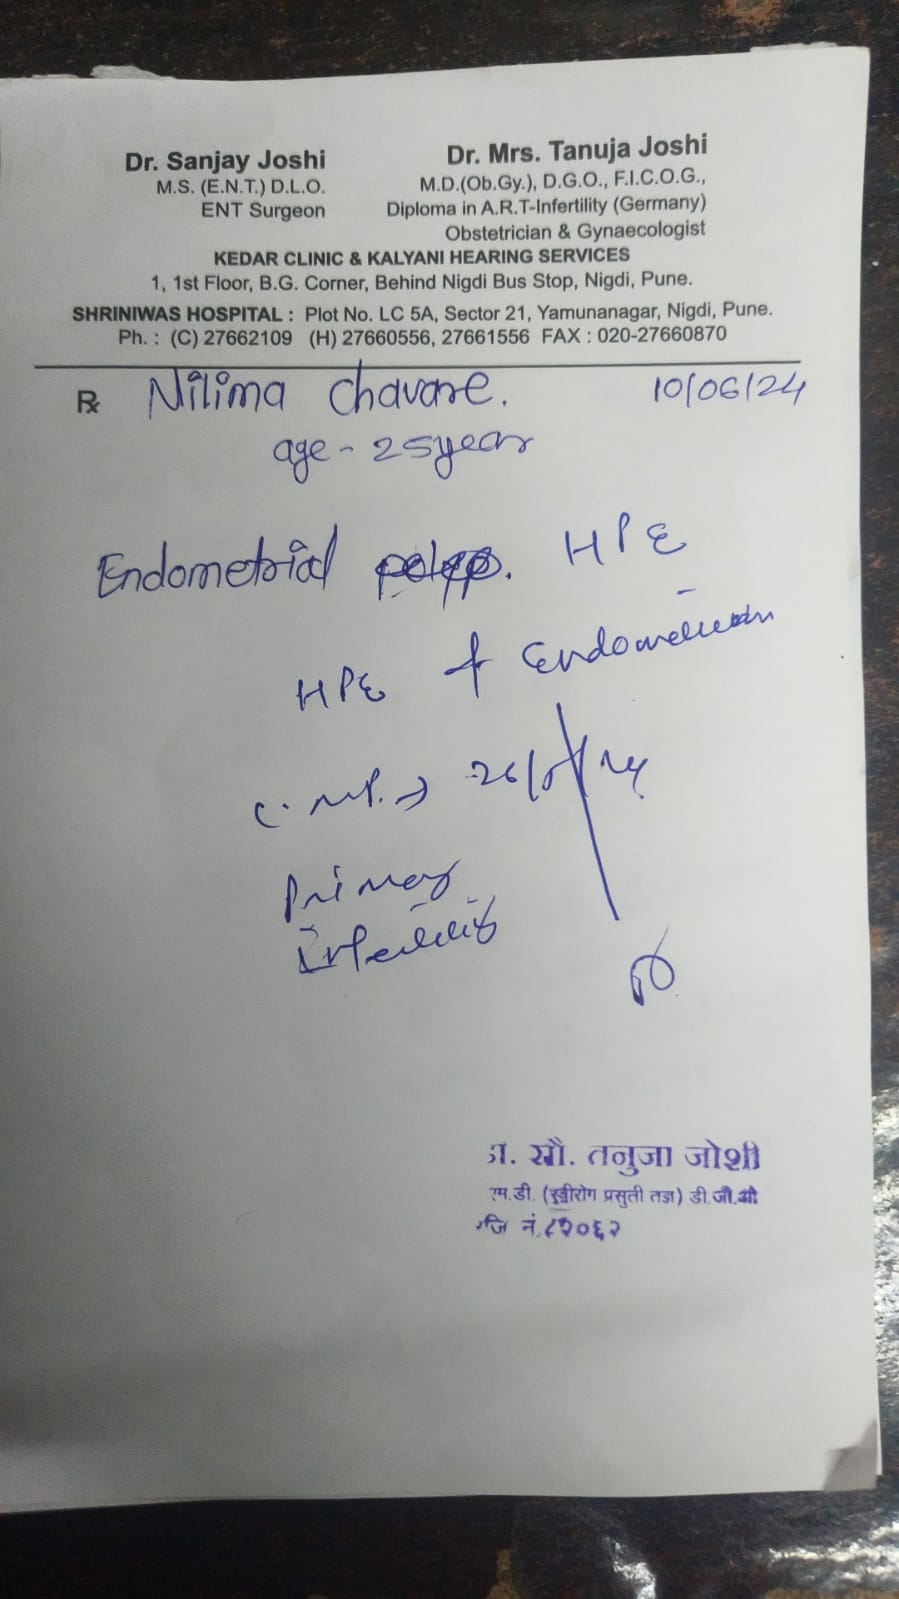 Dr. Sanjay Joshi
M.S. (E.N.T.) D.L.O.
ENT Surgeon
Dr. Mrs. Tanuja Joshi
M.D.(Ob.Gy.), D.G.O., F.I.C.O.G.,
Diploma in A.R.T-Infertility (Germany)
Obstetrician & Gynaecologist
KEDAR CLINIC & KALYANI HEARING SERVICES
1, 1st Floor, B.G. Corner, Behind Nigdi Bus Stop, Nigdi, Pune.
SHRINIWAS HOSPITAL : Plot No. LC 5A, Sector 21, Yamunanagar, Nigdi, Pune.
Ph. : (C) 27662109 (H) 27660556, 27661556 FAX : 020-27660870
℞ Nilima Chavare. 10/06/24
age - 25 year
Endometrial HPE
HPE of Endometrium
L.M.P. →
Primary
Infertility
सौ. तनुजा जोशी
एम.डी. (स्त्रीरोग प्रसुती तज्ञ) डी.जी.ओ
नं.